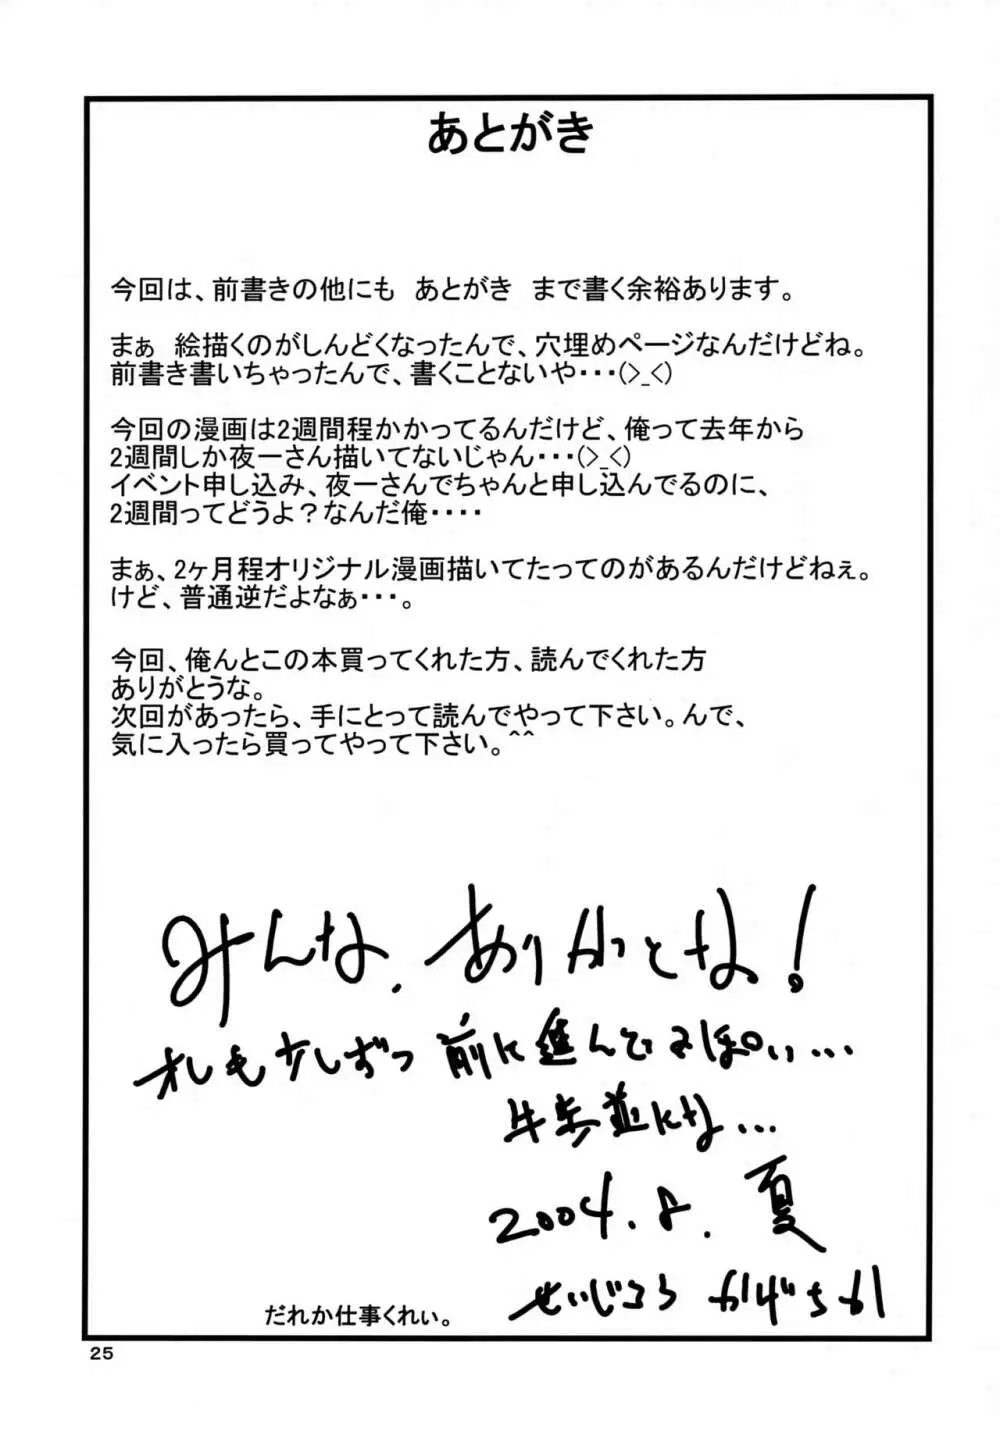 あとがき
今回は、前書きの他にも　あとがき　まで書く余裕あります。
まぁ　絵描くのがしんどくなったんで、穴埋めページなんだけどね。
前書き書いちゃったんで、書くことないや・・・(>_<)
今回の漫画は2週間程かかってるんだけど、俺って去年から
2週間しか夜一さん描いてないじゃん・・・(>_<)
イベント申し込み、夜一さんでちゃんと申し込んでるのに、
2週間ってどうよ？なんだ俺・・・・
まぁ、2ヶ月程オリジナル漫画描いてたってのがあるんだけどねぇ。
けど、普通逆だよなぁ・・・。
今回、俺んとこの本買ってくれた方、読んでくれた方
ありがとうな。
次回があったら、手にとって読んでやって下さい。んで、
気に入ったら買ってやって下さい。^^
みんな、ありがとな！
オレも少しずつ 前に進んでるっぽい...
牛歩並にな...
2004.8. 夏
せいじろう かげちか
だれか仕事くれぃ。
25